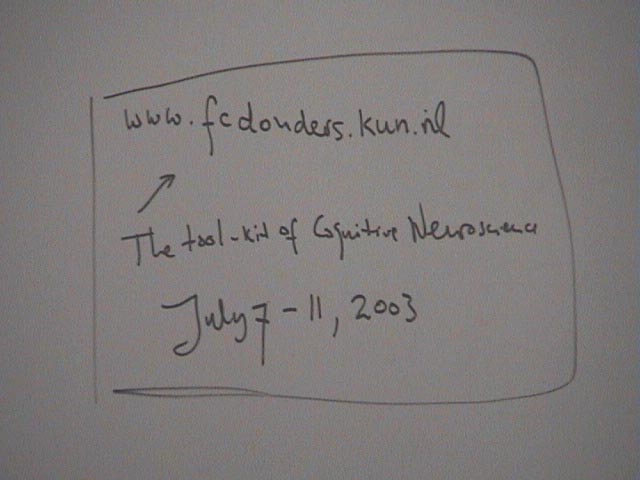 www.fcdonders.kun.nl
The tool-kit of Cognitive Neuroscience
July 7 - 11, 2003